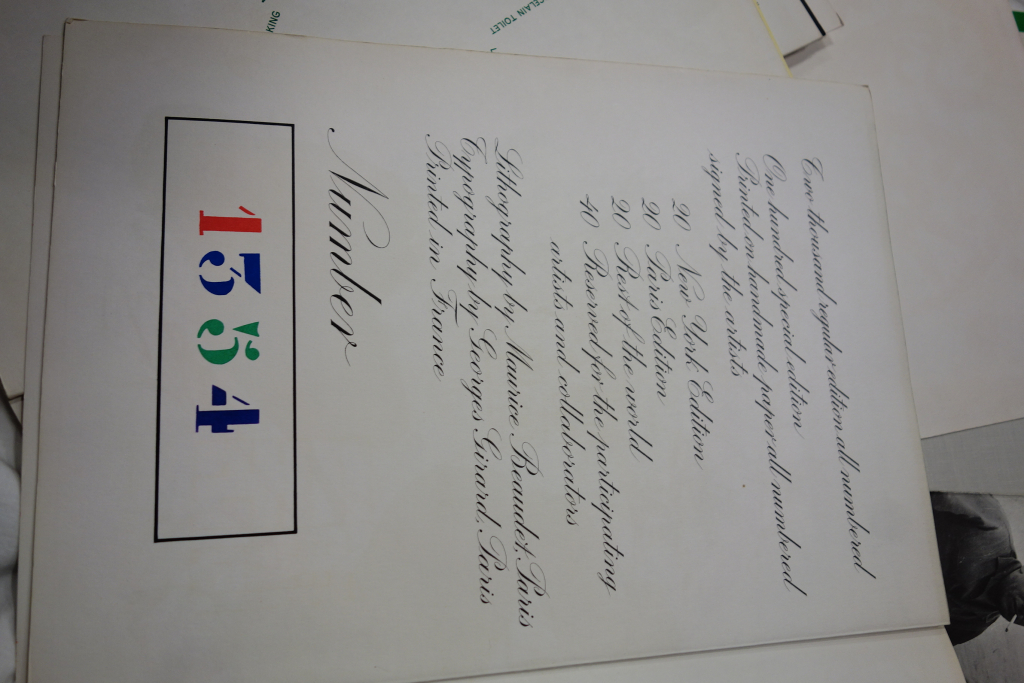 Two thousand regular edition all numbered
One hundred special edition
Printed on handmade paper all numbered
signed by the artists
20 New York Edition
20 Paris Edition
20 Rest of the world
40 Reserved for the participating
artists and collaborators
Lithography by Maurice Beaudet, Paris
Typography by Georges Girard, Paris
Printed in France
Number
KING
CELAIN TOILET